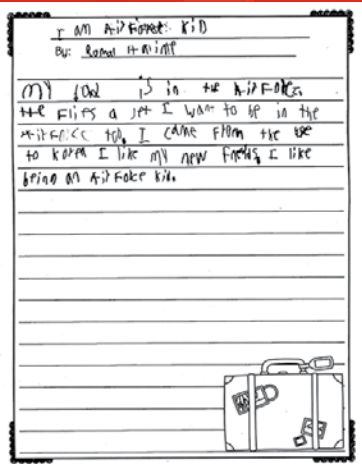 I am Air Force's KiD
By:
My DaD is in the Air Force.
He Flies a jet I want to be in the
Air Force too. I came From the
to Korea I like my new friends. I like
being an Air Force Kid.